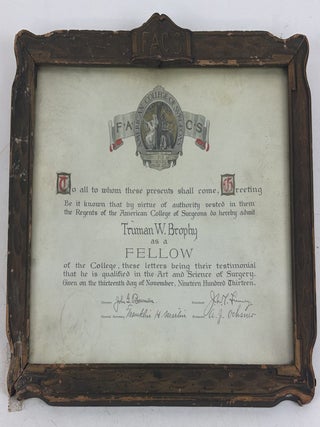 FACS
AMERICAN COLLEGE OF SURGEONS
F·A C·S
To all to whom these presents shall come, Greeting
Be it known that by virtue of authority vested in them
the Regents of the American College of Surgeons do hereby admit
Truman W. Brophy
as a
FELLOW
of the College, these letters being their testimonial
that he is qualified in the Art and Science of Surgery.
Given on the thirteenth day of November, Nineteen Hundred Thirteen.
Director John G. Bowman President John M. T. Finney
General Secretary Franklin H. Martin A. J. Ochsner